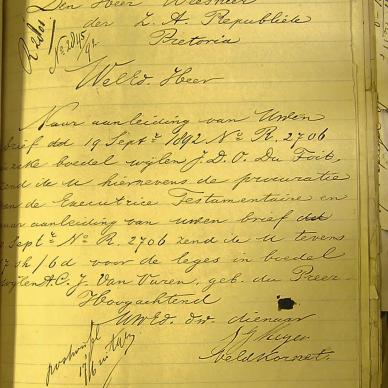 Den Heer Weesheer
der Z. A. Republiek
Pretoria
R2601
No 2045/92
WelEd. Heer
Naar aanleiding van Uwen
brief dd 19 Sept. 1892 No R. 2706
boedel wijlen J. D. O. Du Toit,
zend ik u hiernevens de procuratie
van de Executrice Testamentaire en
naar aanleiding van uwen brief dd
Sept. No R. 2706 zend ik u tevens
/6d voor de leges in boedel
wijlen A. C. J. Van Vuren, geb. du Preez
Hoogachtend
UWEd. dw. dienaar
Veldkornet.